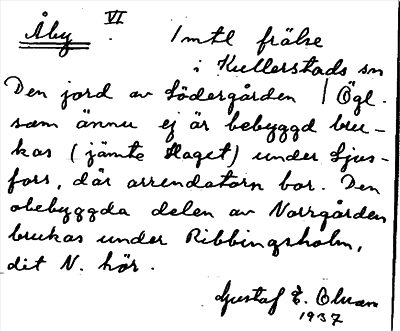 Åby VI. 1 mtl frälse
i Kullerstads sn
Den jord av Södergården / Ögl.
som ännu ej är bebyggd bru-
kas (jämte Haget) under Ljus-
fors, där arrendatorn bor. Den
obebyggda delen av Norrgården
brukas under Ribbingsholm,
dit N. hör.
Gustaf E.
1937